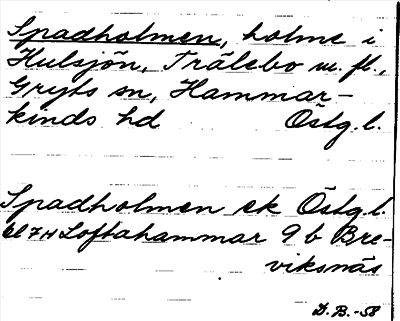 Spadholmen, holme i
Hulsjön, Trälebo m. fl.,
Gryts sn, Hammar-
kinds hd Östg. l.
Spadholmen ek Östg. l.
6l 7H Loftahammar 9 b Bre-
viksnäs
D. B. -58